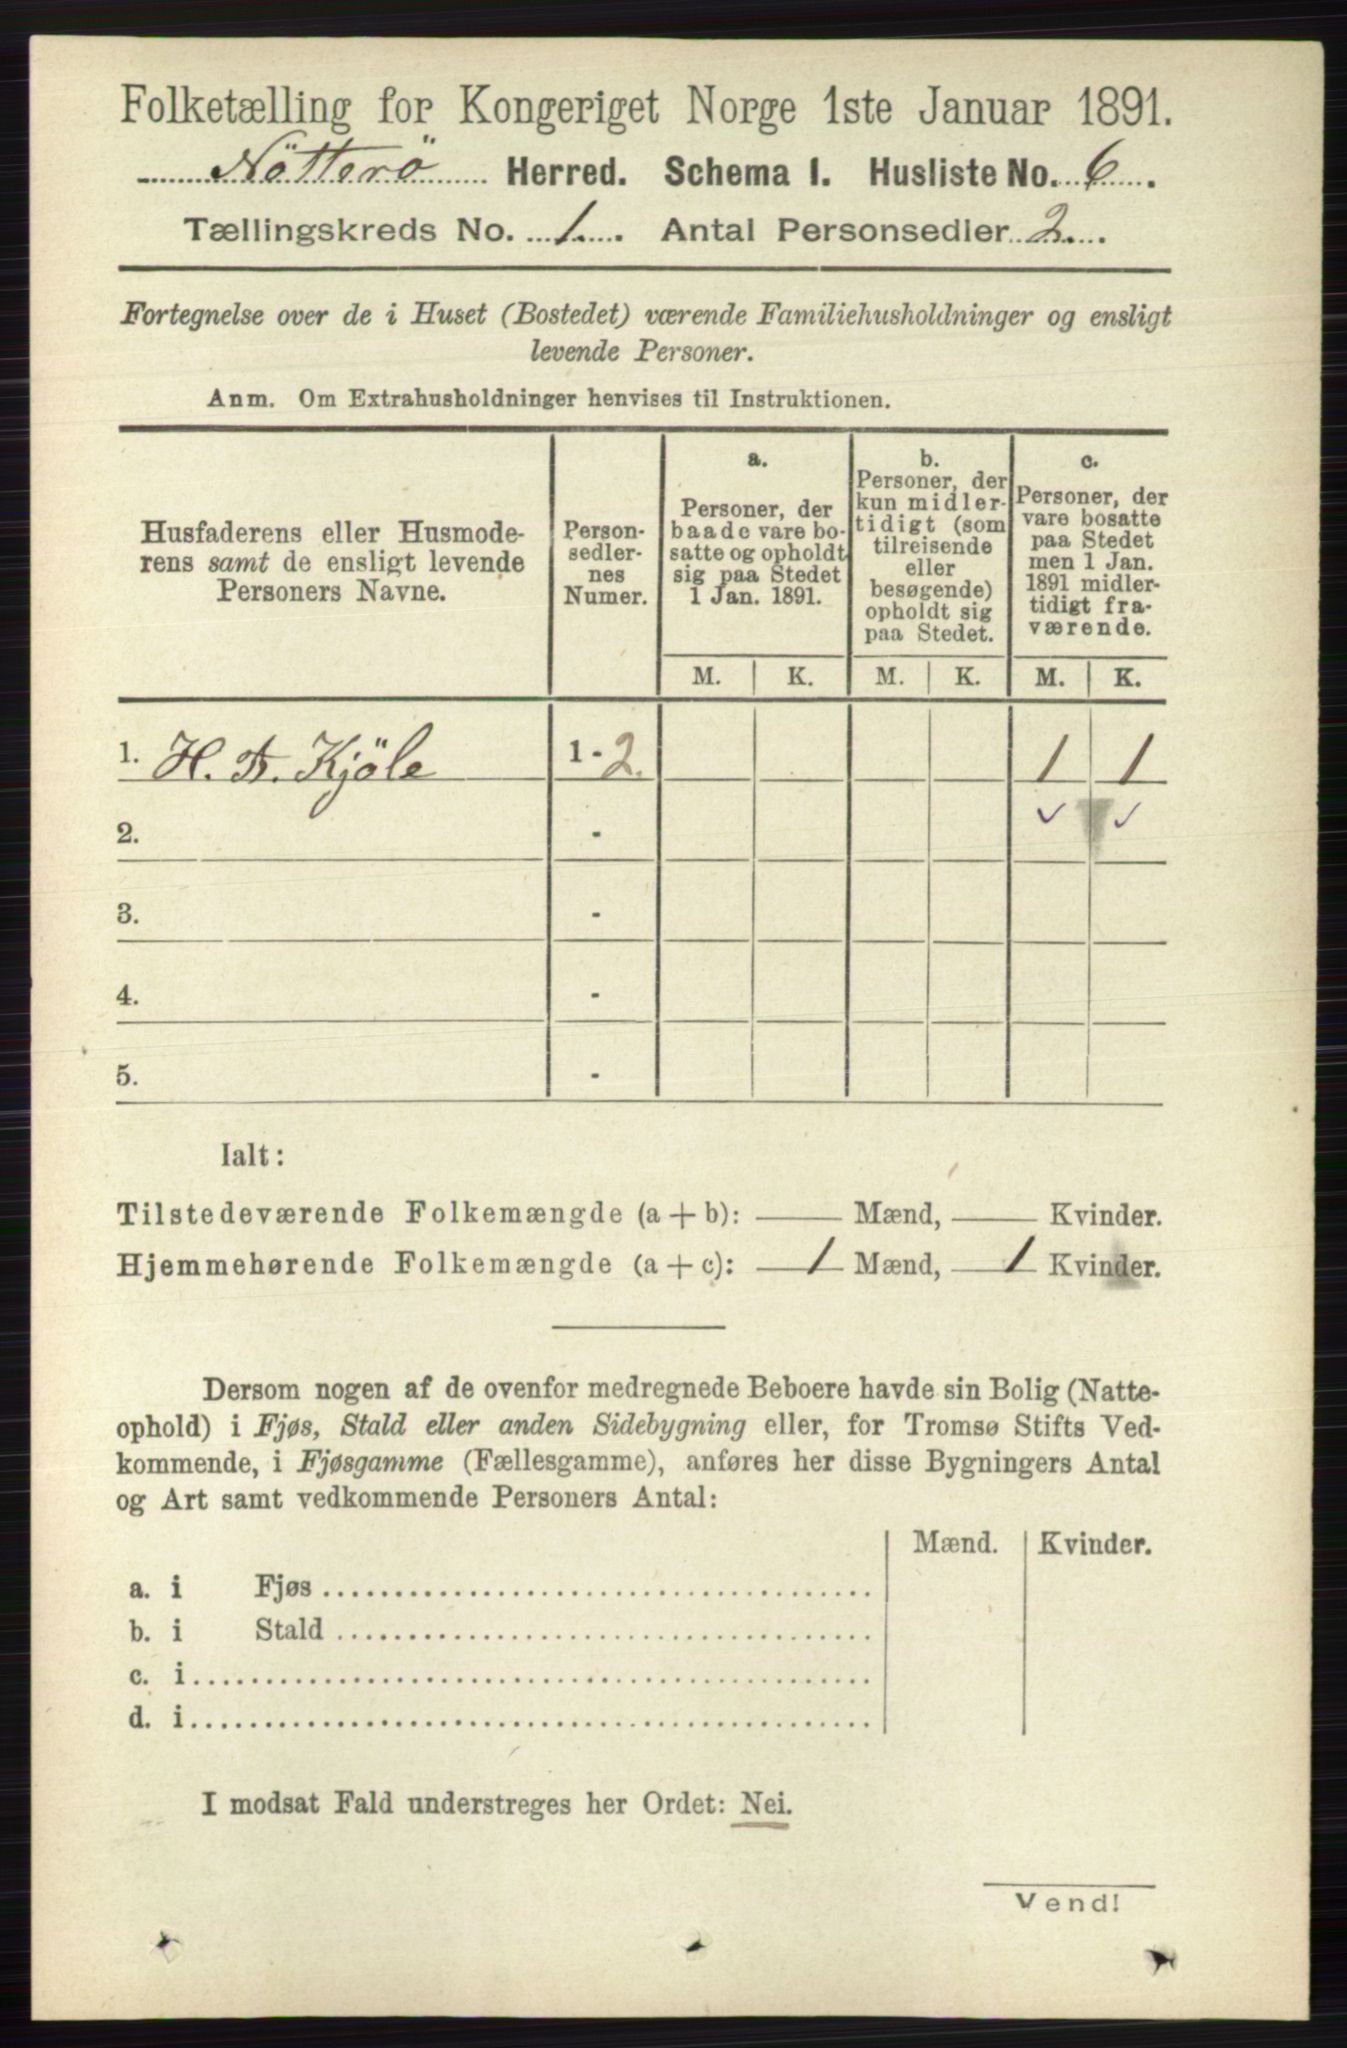 Folketælling for Kongeriget Norge 1ste Januar 1891.
Nötterö Herred. Schema I. Husliste No. 6.
Tællingskreds No. 1. Antal Personsedler 2.
Fortegnelse over de i Huset (Bostedet) værende Familiehusholdninger og ensligt
levende Personer.
Anm. Om Extrahusholdninger henvises til Instruktionen.
Husfaderens eller Husmode-
rens samt de ensligt levende
Personers Navne.
Person-
sedler-
nes
Numer.
a.
Personer, der
baade vare bo-
satte og opholdt
sig paa Stedet
1 Jan. 1891.
b.
Personer, der
kun midler-
tidigt (som
tilreisende
eller
besøgende)
opholdt sig
paa Stedet.
c.
Personer, der
vare bosatte
paa Stedet
men 1 Jan.
1891 midler-
tidigt fra-
værende.
M. K. M. K. M. K.
1. H. Kjöle 1 - 2. 1 1
2. - ✓ ✓
3. -
4. -
5. -
Ialt:
Tilstedeværende Folkemængde (a + b): — Mænd, — Kvinder.
Hjemmehørende Folkemængde (a + c): 1 Mænd, 1 Kvinder.
Dersom nogen af de ovenfor medregnede Beboere havde sin Bolig (Natte-
ophold) i Fjøs, Stald eller anden Sidebygning eller, for Tromsø Stifts Ved-
kommende, i Fjøsgamme (Fællesgamme), anføres her disse Bygningers Antal
og Art samt vedkommende Personers Antal:
Mænd. Kvinder.
a. i Fjøs
b. i Stald
c. i
d. i
I modsat Fald understreges her Ordet: Nei.
Vend!